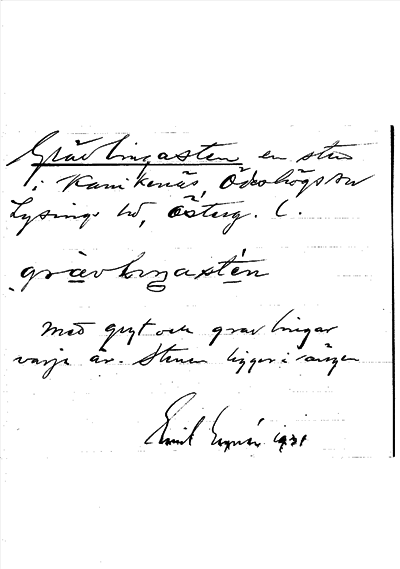 Grävlingasten, en sten
i Kanikenäs, Ödeshögs sn
Lysings hd, Österg. l.
grävliŋastén
med gryt och grävlingar
varje år. Stenen ligger i ängen
Emil 1931